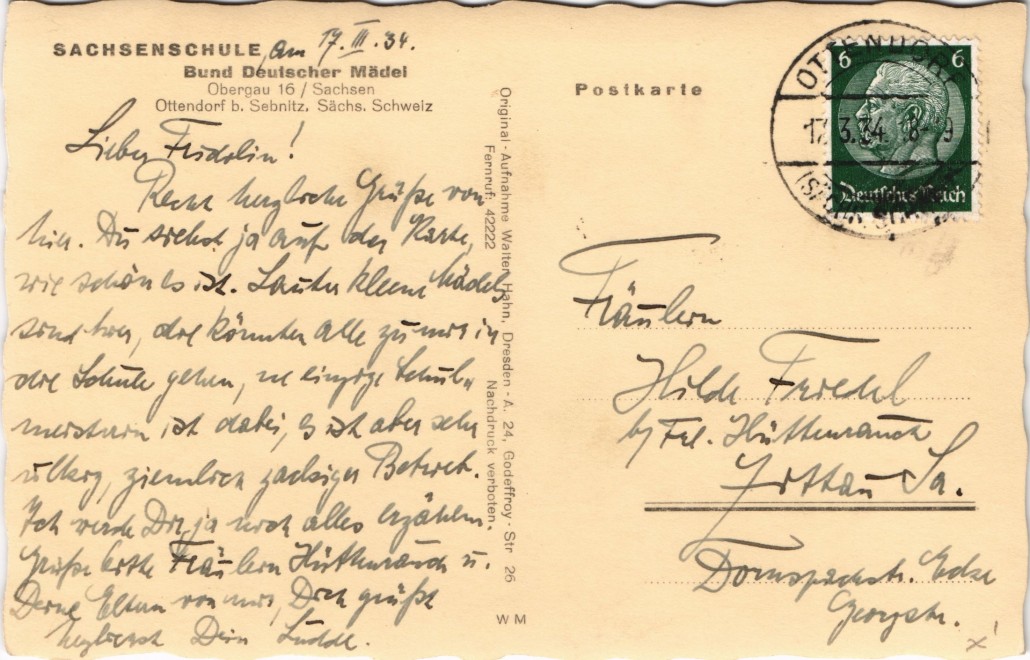 SACHSENSCHULE, am 17. III. 34.
Bund Deutscher Mädel
Obergau 16 / Sachsen
Ottendorf b. Sebnitz, Sächs. Schweiz
Lieber Fridolin!
Recht herzliche Grüße von
hier. Du siehst ja auf der Karte,
wie schön es ist. Lauter kleine Mädels
sind hier, die könnten alle zu mir in
die Schule gehen, ne einzige Schul-
meisterin ist dabei, es ist aber sehr
ulkig, ziemlich zackiger Betrieb.
Ich werde Dir ja noch alles erzählen.
Grüße bitte Fräulein Hüttenrauch u.
Deine Eltern von mir, Dich grüßt
herzlichst Dein Ludde.
Original-Aufnahme Walter Hahn, Dresden-A. 24, Godeffroy-Str 26
Fernruf: 42222 Nachdruck verboten.
W M
Postkarte
OTTENDORF
17.3.34. 8-9
6 6
Deutsches Reich
Fräulein
Hilde Friedel
by Frl. Hüttenrauch
Zittau Sa.
Dornspachstr. Ecke
Georgstr.